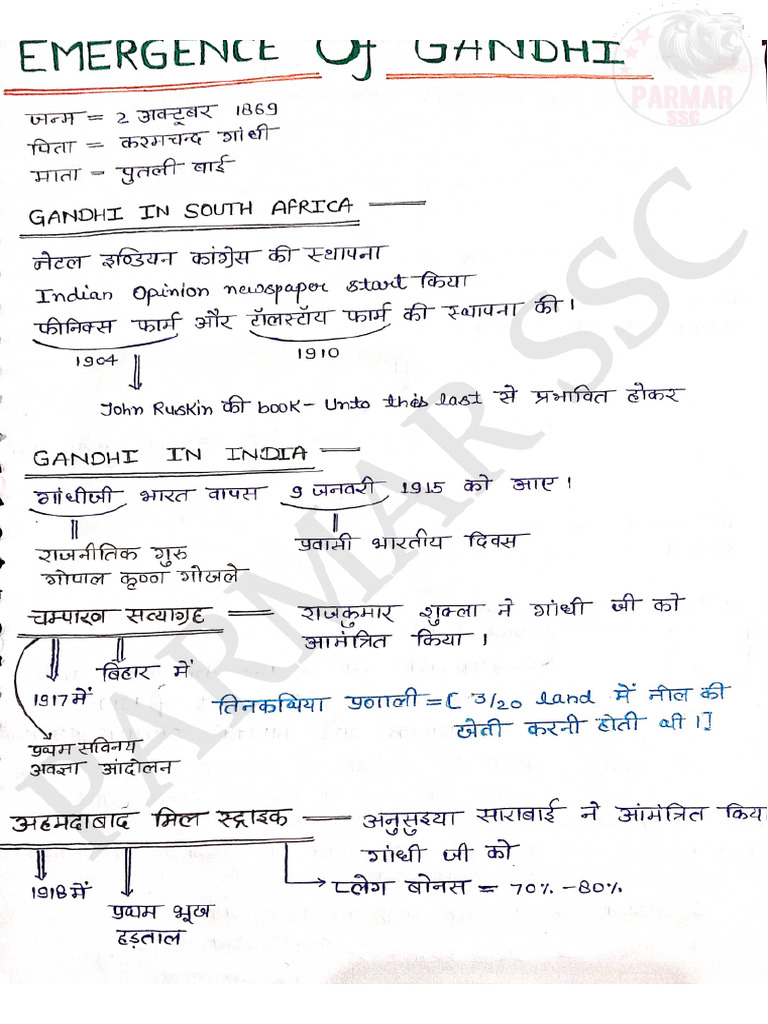 EMERGENCE Of GANDHI
PARMAR
SSC
जन्म = 2 अक्टूबर 1869
पिता = करमचन्द गांधी
माता - पुतली बाई
GANDHI IN SOUTH AFRICA —
नेटल इण्डियन कांग्रेस की स्थापना
Indian Opinion newspaper start किया
फीनिक्स फार्म और टॉलस्टॉय फार्म की स्थापना की।
1904 1910
John Ruskin की book - Unto this last से प्रभावित होकर
GANDHI IN INDIA —
गांधीजी भारत वापस 9 जनवरी 1915 को आए।
राजनीतिक गुरु प्रवासी भारतीय दिवस
गोपाल कृष्ण गोखले
चम्पारन सत्याग्रह — राजकुमार शुक्ला ने गांधी जी को
आमंत्रित किया।
बिहार में
1917 में तिनकथिया प्रणाली = [ 3/20 land में नील की
खेती करनी होती थी।]
प्रथम सविनय
अवज्ञा आंदोलन
अहमदाबाद मिल स्ट्राइक — अनुसुइया साराबाई ने आंमंत्रित किया
गांधी जी को
1918 में प्लेग बोनस = 70% - 80%
प्रथम भूख
हड़ताल
PARMAR SSC